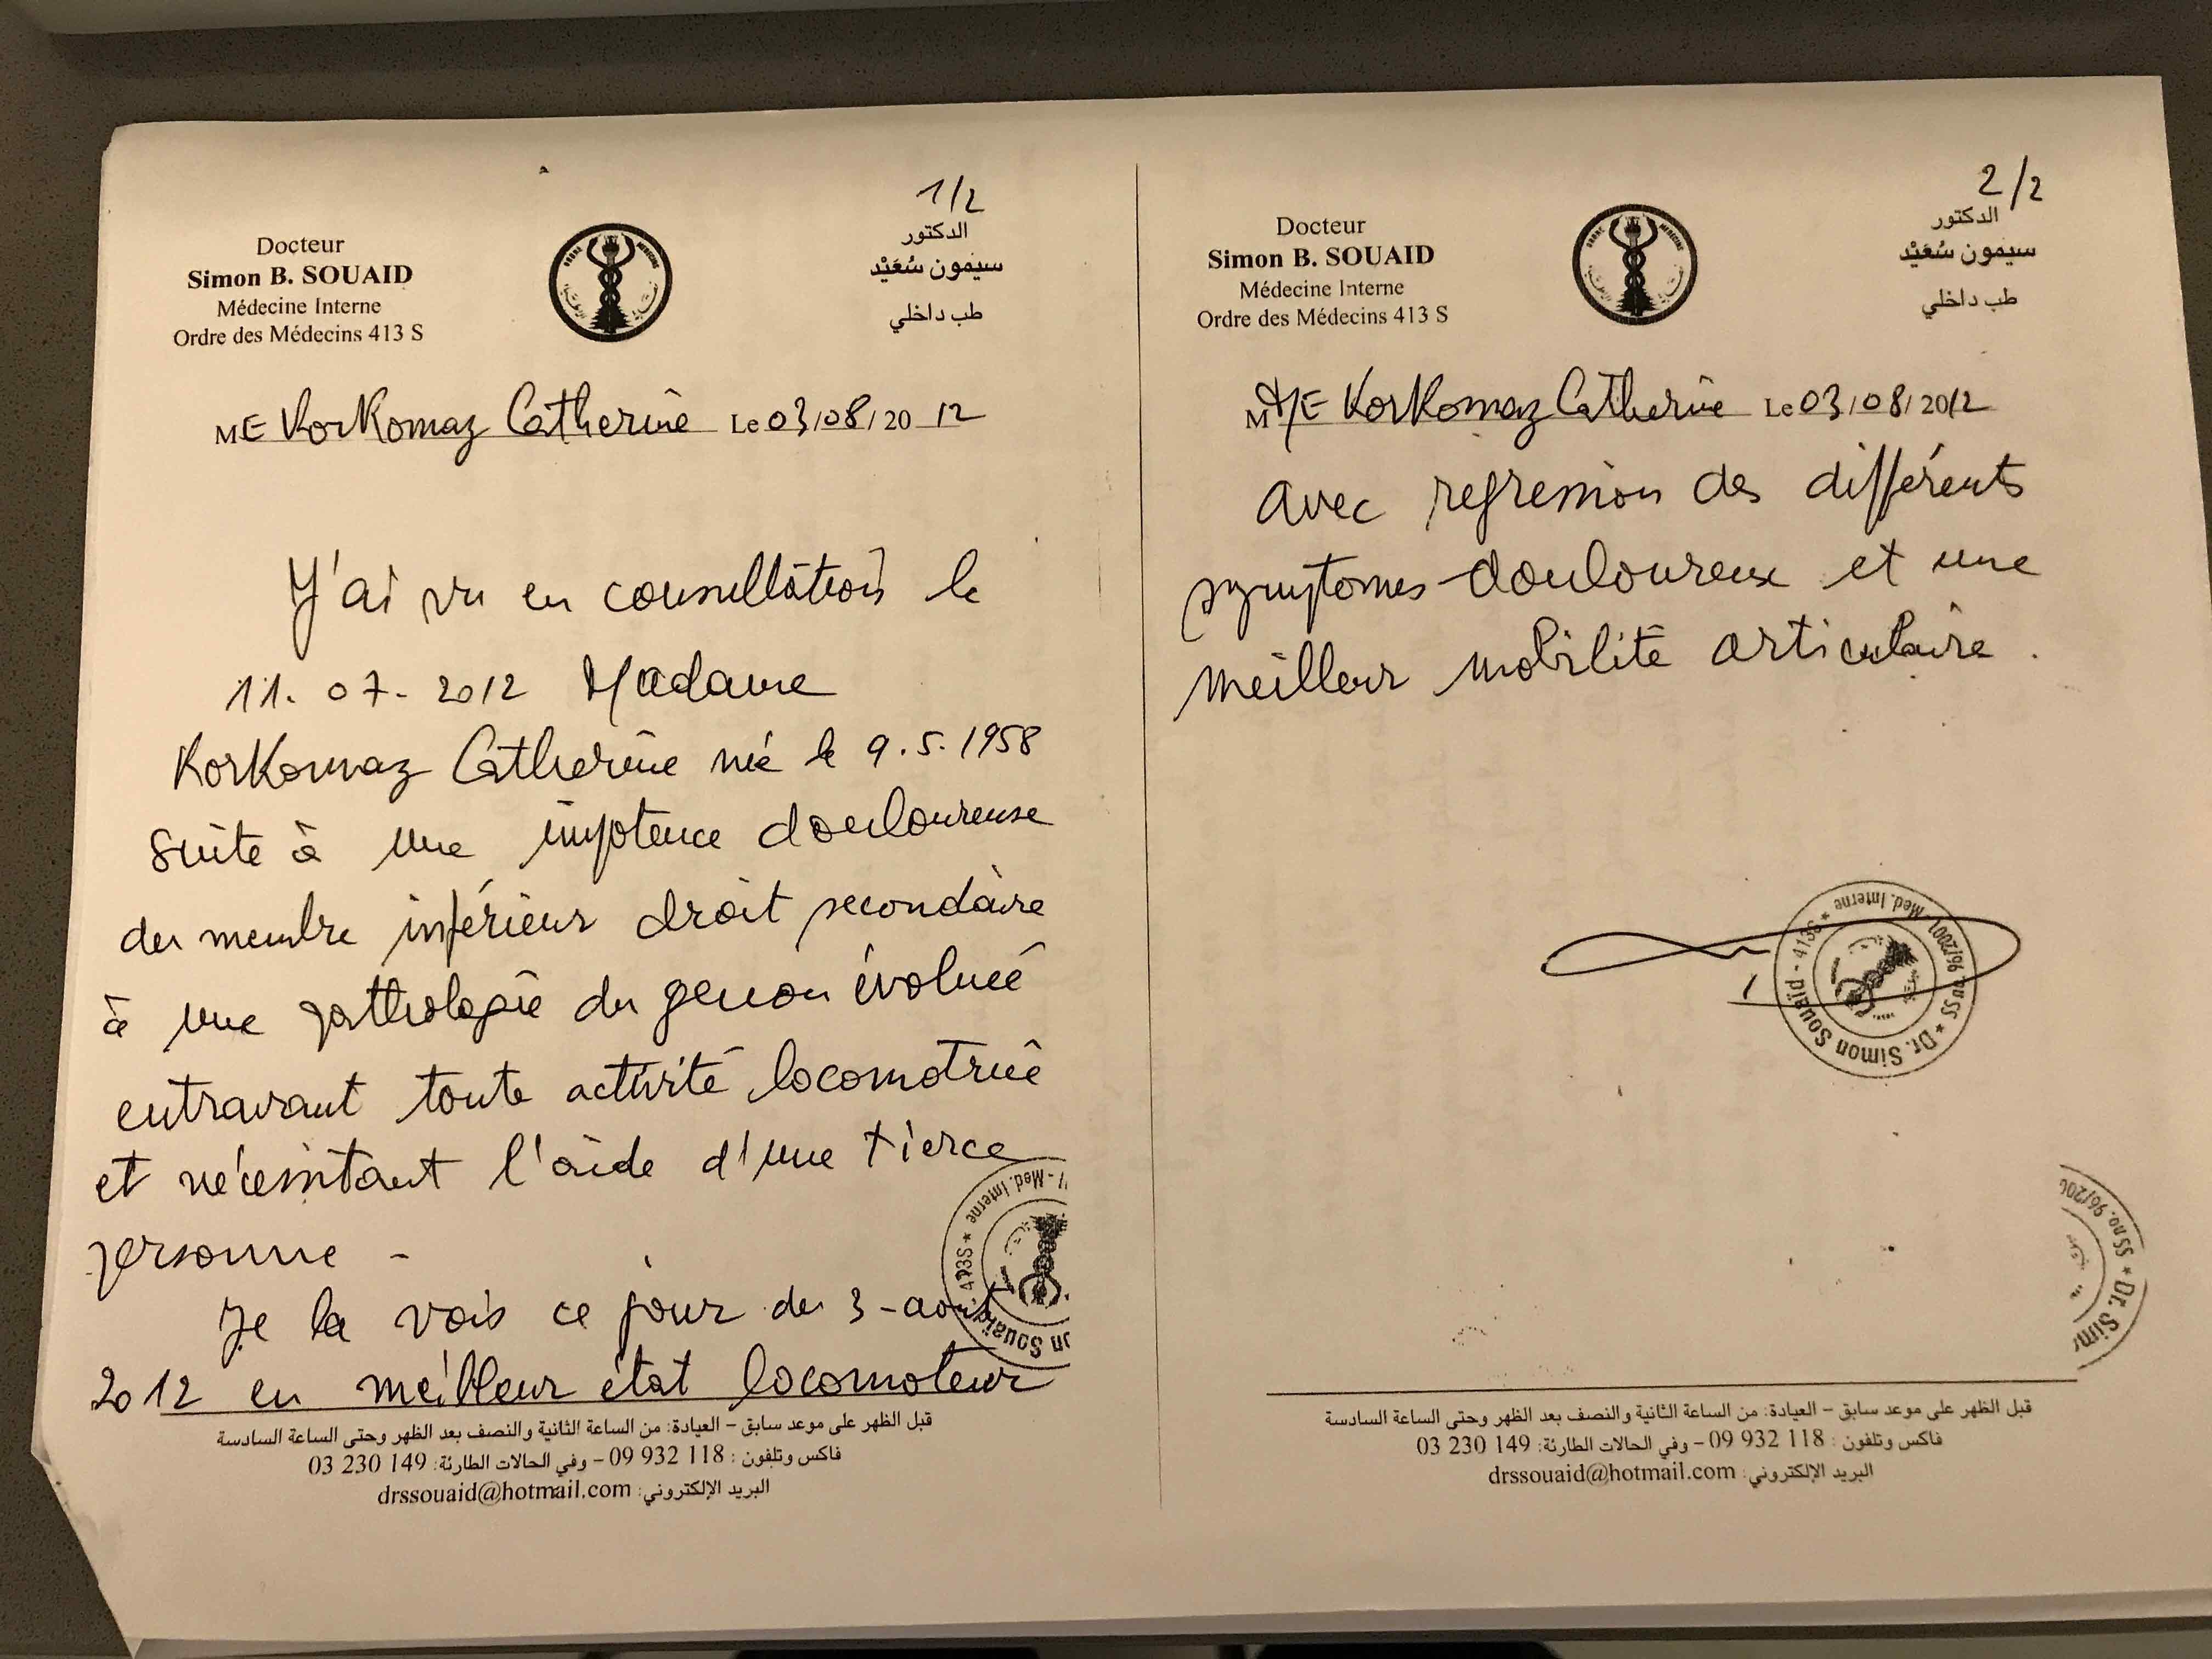 1/2
Docteur
Simon B. SOUAID
Médecine Interne
Ordre des Médecins 413 S
الدكتور
سيمون سُعَيْد
طب داخلي
ME KorKomaz Catherine Le 03/08/20 12
J'ai vu en consultation le
11. 07 - 2012 Madame
KorKomaz Catherine née le 9.5.1958
suite à une impotence douloureuse
du membre inférieur droit secondaire
à une pathologie du genou évoluée
entravant toute activité locomotrice
et nécessitant l'aide d'une tierce
personne -
Je la vois ce jour du 3 - août
2012 en meilleur état locomoteur
Med. Interne * 413S
on Souaid
قبل الظهر على موعد سابق – العيادة: من الساعة الثانية والنصف بعد الظهر وحتى الساعة السادسة
فاكس وتلفون : 118 932 09 – وفي الحالات الطارئة: 149 230 03
البريد الإلكتروني: drssouaid@hotmail.com
2/2
Docteur
Simon B. SOUAID
Médecine Interne
Ordre des Médecins 413 S
الدكتور
سيمون سُعَيْد
طب داخلي
MME KorKomaz Catherine Le 03/08/2012
avec regression des différents
symptomes douloureux et une
meilleur mobilité articulaire.
* Dr. Simon Souaid - 413S * Med. Interne 96/2001 SS no.
96/200 SS no. * Dr. Sim
قبل الظهر على موعد سابق – العيادة: من الساعة الثانية والنصف بعد الظهر وحتى الساعة السادسة
فاكس وتلفون : 118 932 09 – وفي الحالات الطارئة: 149 230 03
البريد الإلكتروني: drssouaid@hotmail.com